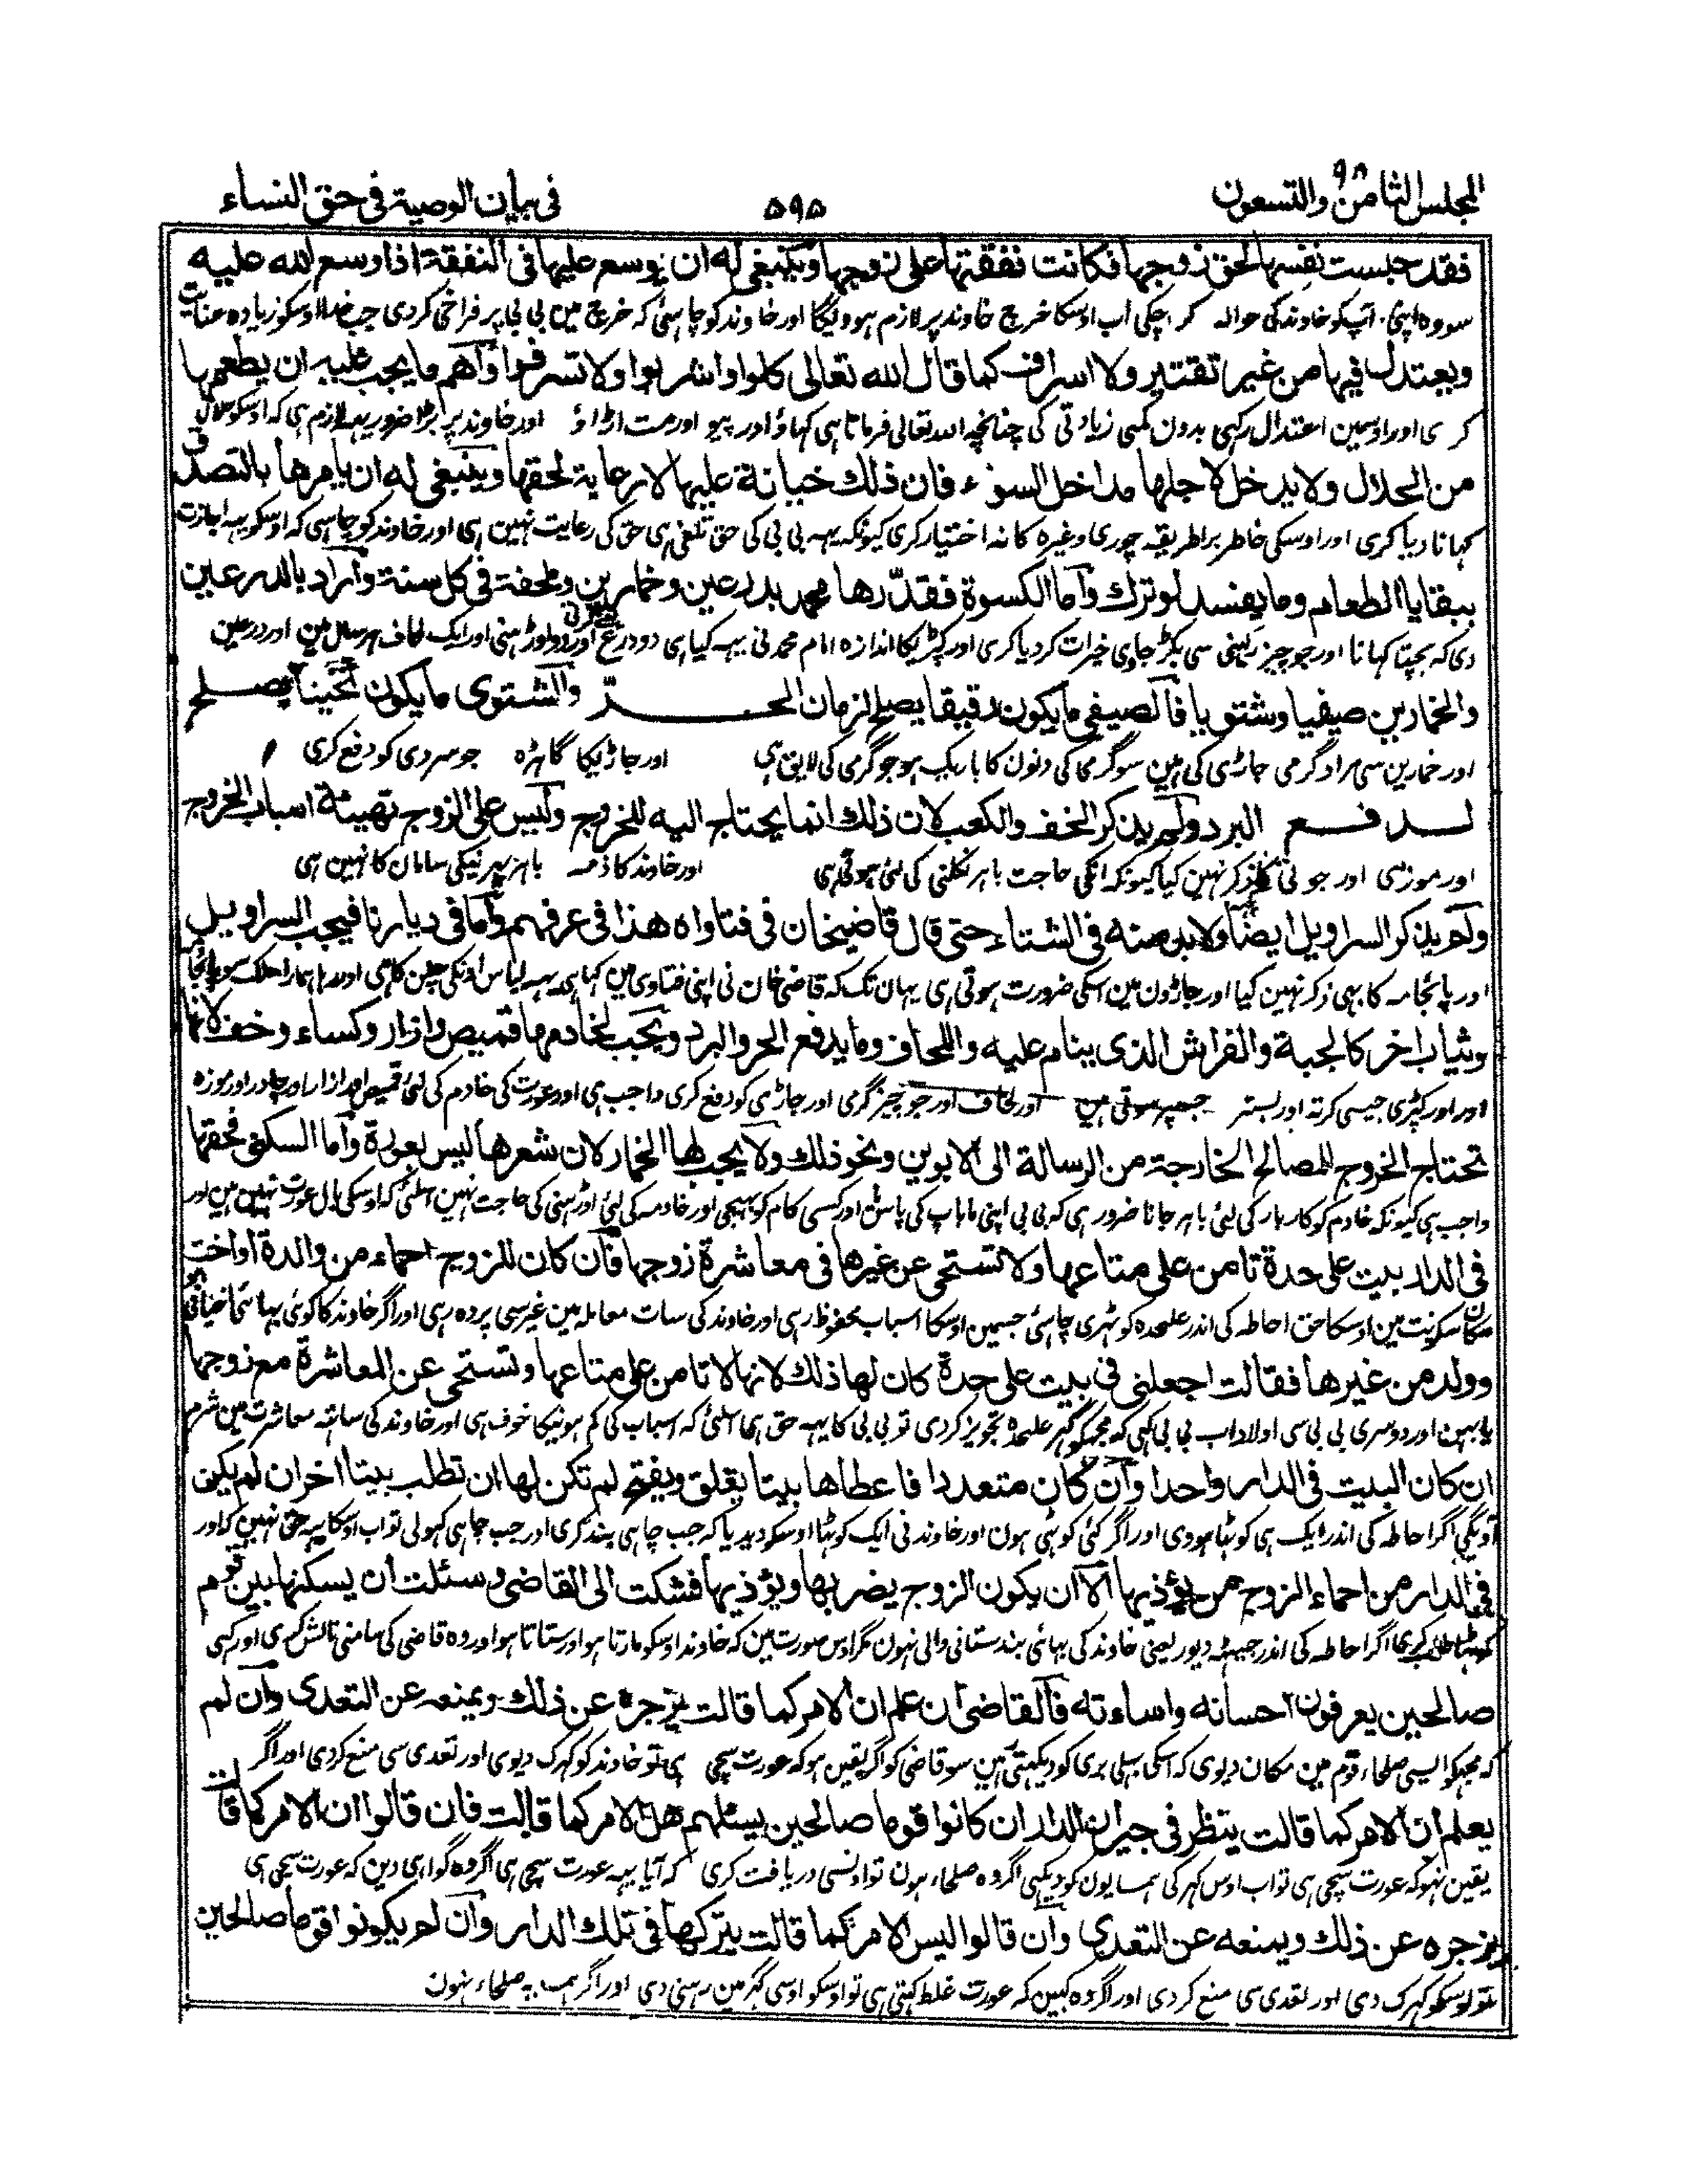 المجلس الثامن والتسعون ۹۸
۵۹۵
فی بیان الوصیة فی حق النساء
فقد حبست نفسها لحق زوجها فكانت نفقتها على زوجها وینبغی له ان یوسع علیها فی النفقة اذا وسع الله علیه
سو وہ اپنی آپکو خاوند کی حوالہ کر چکی اب اوسکا خرچ خاوند پر لازم ہوویگا اور خاوند کو چاہئی کہ خرچ مین بی بی پر فراخی کردی جب خدا اوسکو زیادہ عنایت
ویعتدل فیها من غیر تقتیر ولا اسراف کما قال الله تعالی کلوا واشربوا ولا تسرفوا واهم ما یجب علیه ان یطعمها
کری اور اوسمین اعتدال رکہی بدون کمی زیادتی کی چنانچہ اللہ تعالی فرماتا ہی کہاؤ اور پیو اور مت اڑاؤ اور خاوند پر بڑا ضرور یہہ لازم ہی کہ اوسکو حلال
من الحلال ولا یدخل لاجلها مداخل السوء فان ذلك خیانة علیها لا رعایة لحقها وینبغی له ان یامرها بالتصدق
کہانا دیا کری اور اوسکی خاطر برا طریقہ چوری وغیرہ کا نہ اختیار کری کیونکہ یہہ بی بی کی حق تلفی ہی حق کی رعایت نہین ہی اور خاوند کو چاہئی کہ اوسکو یہہ اجازت
ببقایا الطعام وما یفسد لو ترك واما الکسوة فقدّرها محمد بدرعین وخمارین وملحفة فی کل سنة واراد بالدرعین
دی کہ بچتا کہانا اور جو چیز رہنی سی بگڑ جاوی خیرات کر دیا کری اور کپڑیکا اندازہ امام محمد نی یہہ کیا ہی دو درع اور دو اوڑہنی اور ایک لحاف ہر سال مین اور درعین
والخمارین صیفیا وشتویا فالصیفی ما یکون رقیقا یصلح لزمان الحـرّ والشتوی ما یکون ثخینا یصلح
اور خمارین سی مراد گرمی جاڑی کی ہین سو گرمی کی دنون کا باریک ہو جو گرمی کی لایق ہی اور جاڑیکا گاڑہ جو سردی کو دفع کری
لـدفـع البرد ولم یذکر الخف والکعب لان ذلك انما یحتاج الیه للخروج ولیس علی الزوج تهیئة اسباب الخروج
اور موزی اور جوتی کا ذکر نہین کیا کیونکہ انکی حاجت باہر نکلنی کی لئی ہوتی ہی اور خاوند کا ذمہ باہر پہرنیکی سامان کا نہین ہی
ولم یذکر السراویل ایضا ولا بد منه فی الشتاء حتی قال قاضیخان فی فتاواه هذا فی عرفهم واما فی دیارنا فیجب السراویل
اور پائجامہ کا بہی ذکر نہین کیا اور جاڑون مین اسکی ضرورت ہوتی ہی یہان تک کہ قاضی خان نی اپنی فتاوی مین کہا ہی یہہ لباس اونکی چلن کا ہی اور ہمارا ملک سو پائجامہ
وثیاب اخر کالجبة والفراش الذی ینام علیه واللحاف وما یدفع الحر والبرد ویجب لخادمها قمیص وازار وکساء وخف لانها
اور اور کپڑی جیسی کرتہ اور بستر جسپر سوتی ہین اور لحاف اور جو چیز گرمی اور جاڑی کو دفع کری واجب ہی اور عورت کی خادم کی لئی قمیص اور ازار اور چادر اور موزہ
تحتاج الخروج للمصالح الخارجة من الرسالة الی الابوین ونحو ذلك ولا یجب لها الخمار لان شعرها لیس بعورة واما السکنی فحقها
واجب ہی کیونکہ خادم کو کاربار کی لئی باہر جانا ضرور ہی کہ بی بی اپنی ماباپ کی پاس اور کسی کام کو بہیجی اور خادمہ کی لئی اوڑہنی کی حاجت نہین اسلئی کہ اوسکی بال عورت نہین ہین اور
فی الدار بیت علی حدة تامن علی متاعها ولا تستحی عن غیرها فی معاشرة زوجها فان کان للزوج احماء من والدة او اخت
مکان سکونت مین اوسکا حق احاطہ کی اندر علحدہ کوٹہری چاہئی جسمین اوسکا اسباب محفوظ رہی اور خاوند کی سات معاملہ مین غیر سی پردہ رہی اور اگر خاوند کا کوئی
وولد من غیرها فقالت اجعلنی فی بیت علی حدة کان لها ذلك لانها لا تامن علی متاعها وتستحی عن المعاشرة مع زوجها
یا بہین اور دوسری بی بی سی اولاد اب بی بی کہی کہ مجہکو گہر علحدہ تجویز کردی تو بی بی کا یہہ حق ہی اسلئی کہ اسباب کی کم ہونیکا خوف ہی اور خاوند کی ساتہہ معاشرت مین شرم
ان کان البیت فی الدار واحدا وان کان متعددا فاعطاها بیتا یغلق ویفتح لم تکن لها ان تطلب بیتا اخر ان لم یکن
آویگی اگر احاطہ کی اندر ایک ہی کوٹہا ہووی اور اگر کئی کوٹہی ہون اور خاوند نی ایک کوٹہا اوسکو دیدیا کہ جب چاہی بند کری اور جب چاہی کہولی تو اب اوسکا یہہ حق نہین کہ اور
فی الدار من احماء الزوج من یؤذیها الا ان یکون الزوج یضربها ویؤذیها فشکت الی القاضی وسئلت ان یسکنها بین قوم
کوٹہا طلب کری اگر احاطہ کی اندر جیٹہہ دیور یعنی خاوند کی بہائی بند ستانی والی نہون مگر اوس صورت مین کہ خاوند اوسکو مارتا ہو اور ستاتا ہو اور وہ قاضی کی سامنی نالش کری اور کہی
صالحین یعرفون احسانه واساءته فالقاضی ان علم ان الامر کما قالت یزجره عن ذلك ویمنعه عن التعدی وان لم
کہ مجہکو ایسی صلحاء قوم مین مکان دیوی کہ اسکی بہلی بری کو دیکہتی ہین سو قاضی کو اگر یقین ہو کہ عورت سچی ہی تو خاوند کو جہڑک دیوی اور تعدی سی منع کردی اور اگر
یعلم ان الامر کما قالت ینظر فی جیران الدار ان کانوا قوما صالحین یسئلهم هل الامر کما قالت فان قالوا ان الامر کما قالت
یقین نہو کہ عورت سچی ہی تو اب اوس گہر کی ہمسایون کو دیکہی اگر وہ صلحاء ہون تو اونسی دریافت کری کہ آیا یہہ عورت سچی ہی اگر وہ گواہی دین کہ عورت سچی ہی
یزجره عن ذلك ویمنعه عن التعدی وان قالوا لیس الامر کما قالت یترکها فی تلك الدار وان لم یکونوا قوما صالحین
تو اوسکو جہڑک دی اور تعدی سی منع کردی اور اگر وہ کہین کہ عورت غلط کہتی ہی تو اوسکو اوسی گہر مین رہنی دی اور اگر ہمسایہ صلحاء نہون